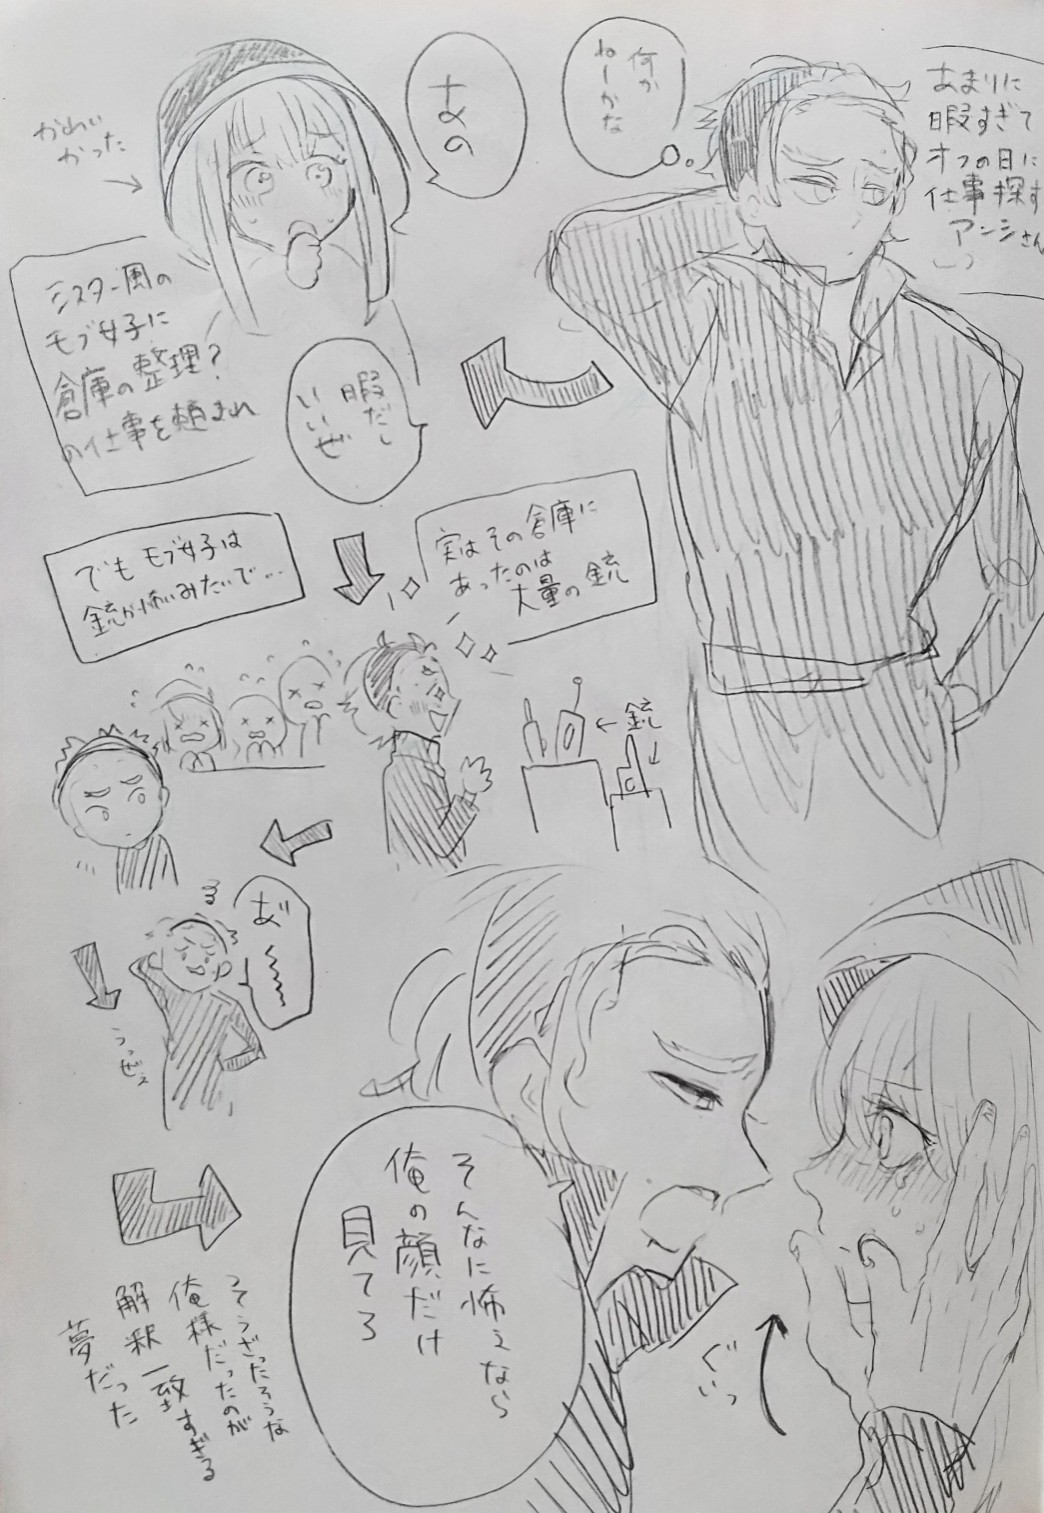 あまりに
暇すぎて
オフの日に
仕事探す
アンシさん
何か
ねーかな
あの
かわい
かった
ミスター風の
モブ女子に
倉庫の整理?
の仕事を頼まれ
暇だし
いいぜ
実はその倉庫に
あったのは
大量の銃
でもモブ女子は
銃が怖いみたいで…
←銃
あ゛〜
うっぜぇ
そんなに怖えなら
俺の顔だけ
見てろ
ぐいっ
そうざったそうな
俺様だったのが
解釈一致すぎる
夢だった